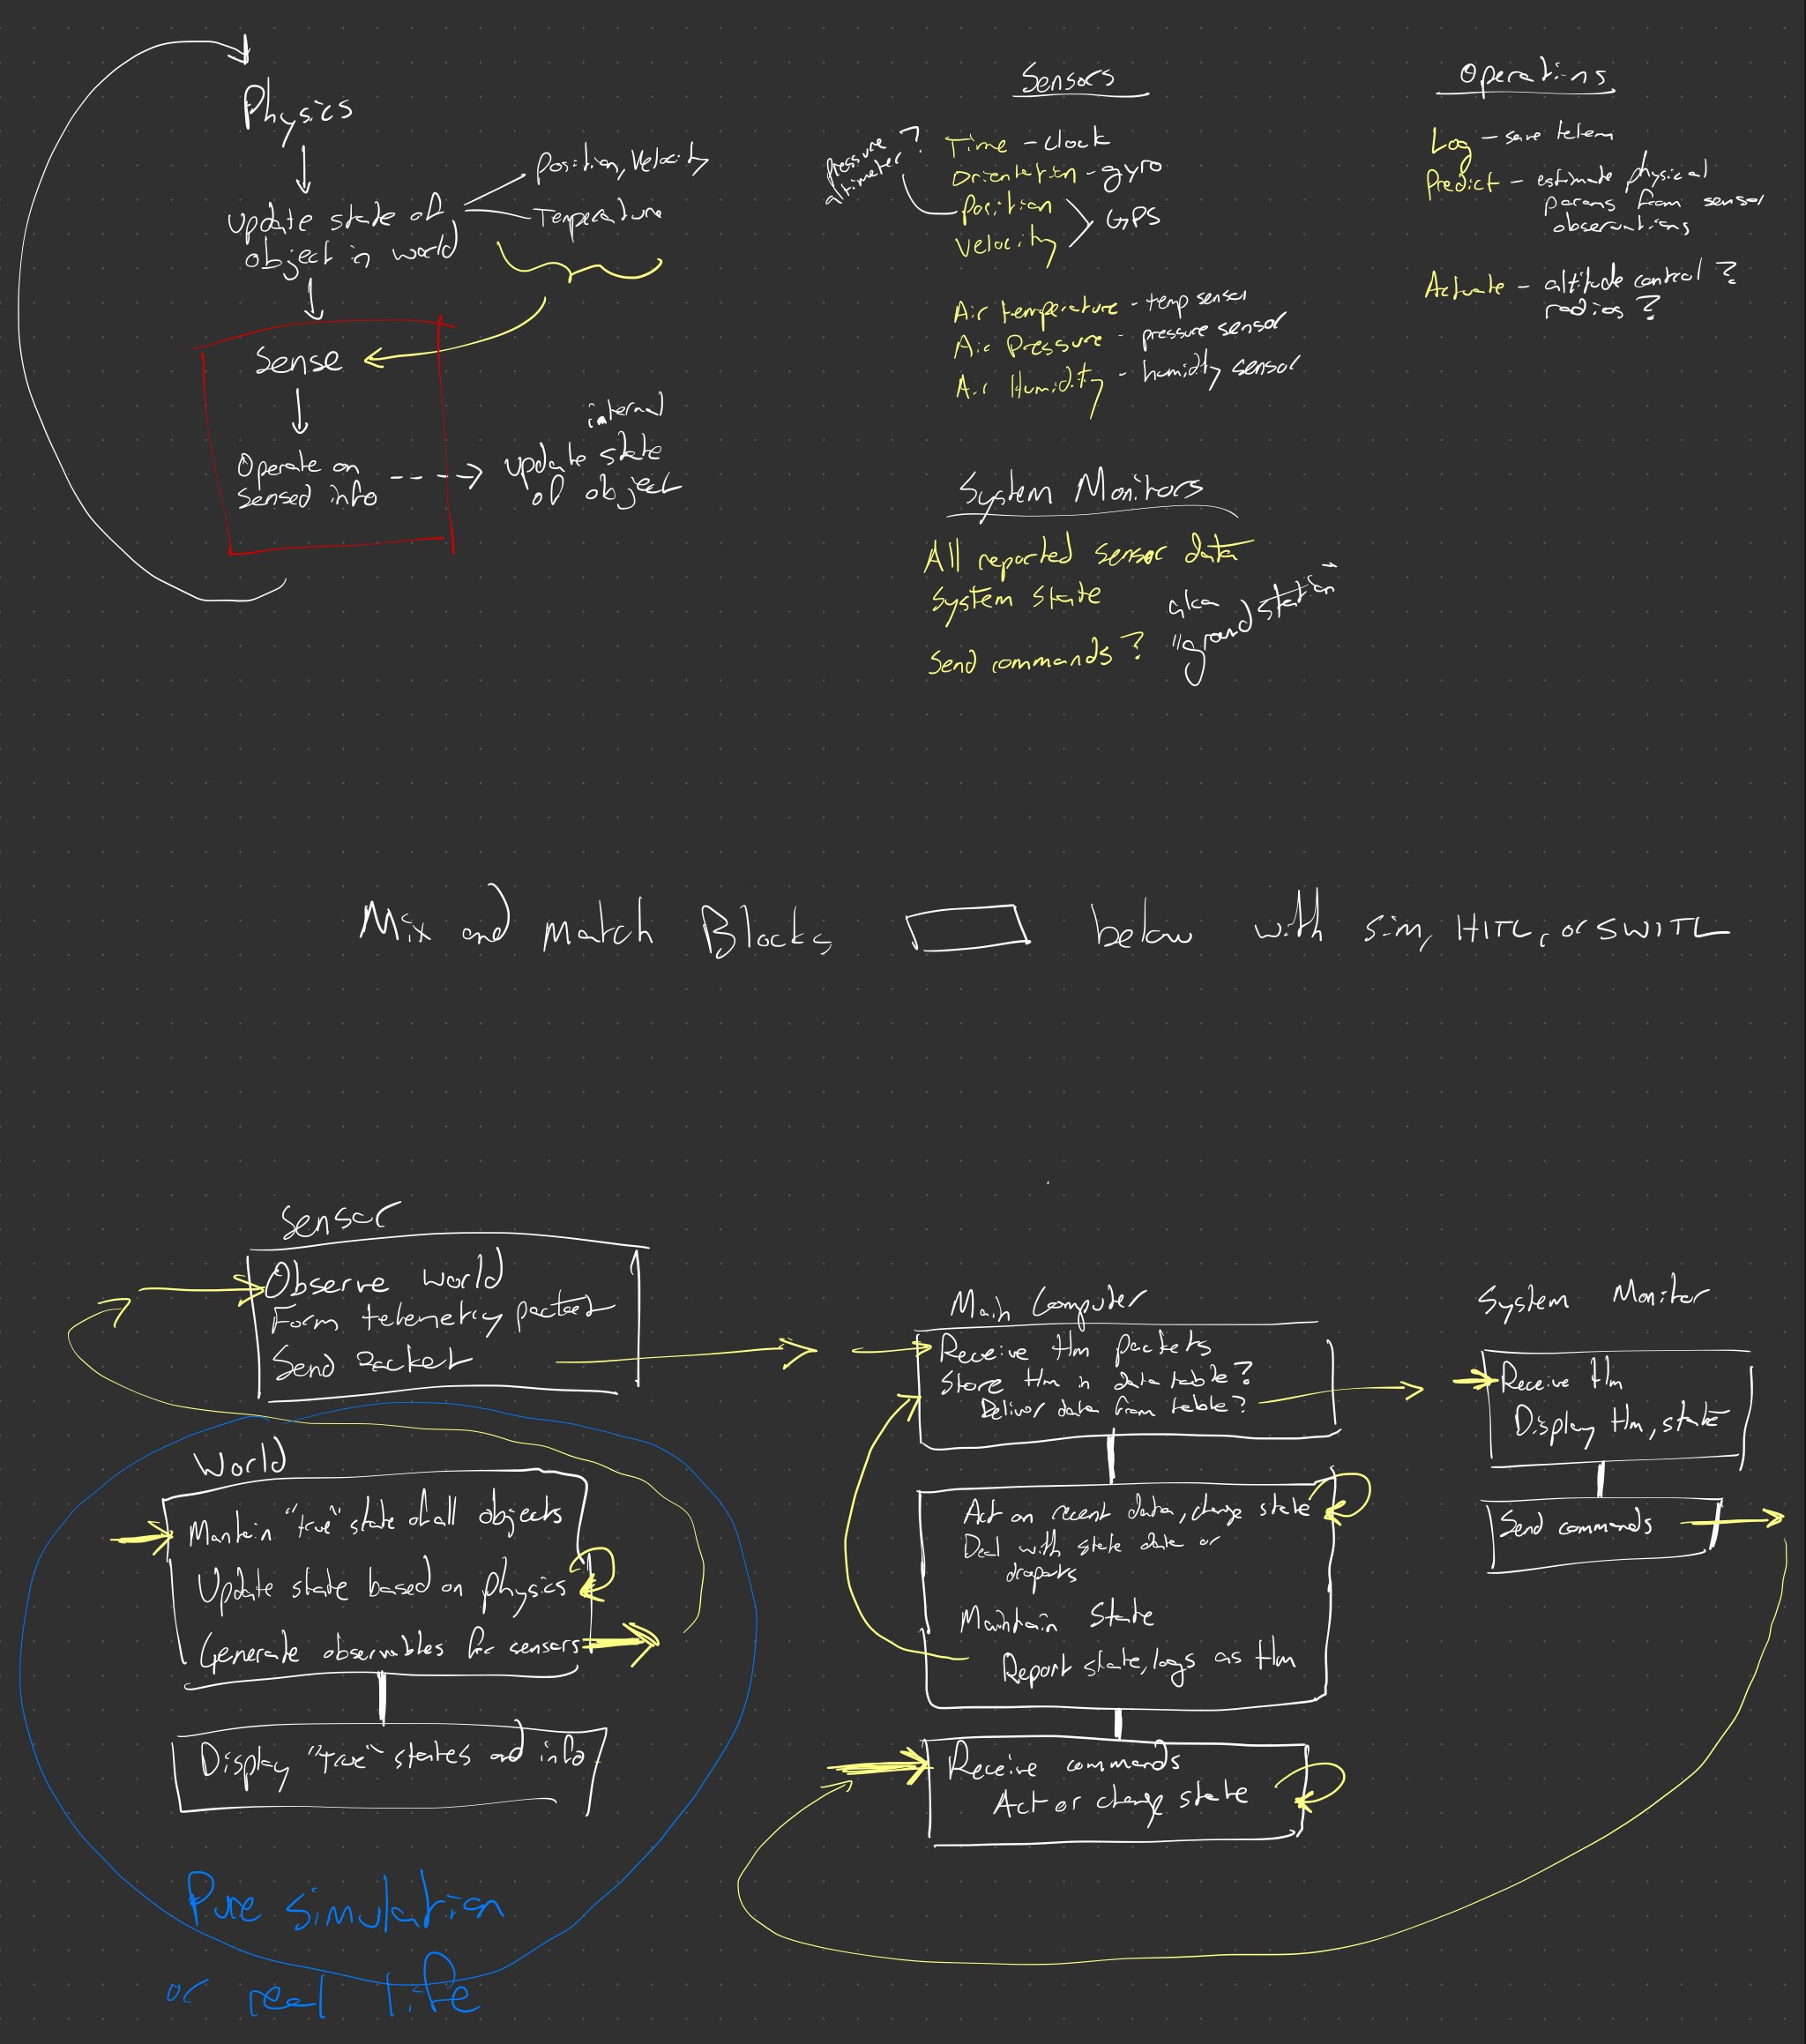 Physics
Update state of
object in world
Position, Velocity
Temperature
Sense
Operate on
sensed info
internal
update state
of object
Sensors
pressure
altimeter?
Time - clock
Orientation - gyro
Position
Velocity
GPS
Air temperature - temp sensor
Air Pressure - pressure sensor
Air Humidity - humidity sensor
System Monitors
All reported sensor data
System state
Send commands?
aka
"ground station"
Operations
Log - save telem
Predict - estimate physical
params from sensor
observations
Actuate - altitude control?
radios?
Mix and match Blocks below with sim, HITL, or SWITL
Sensor
Observe world
Form telemetry packet
Send packet
World
Mantein "true" state of all objects
Update state based on physics
Generate observables for sensors
Display "true" states and info
Pure simulation
or real life
Main Computer
Receive tlm packets
Store tlm in data table?
Deliver data from table?
Act on recent data, change state
Deal with stale data or
dropouts
Maintain state
Report state, logs as tlm
Receive commands
Act or change state
System Monitor
Receive tlm
Display tlm, state
Send commands